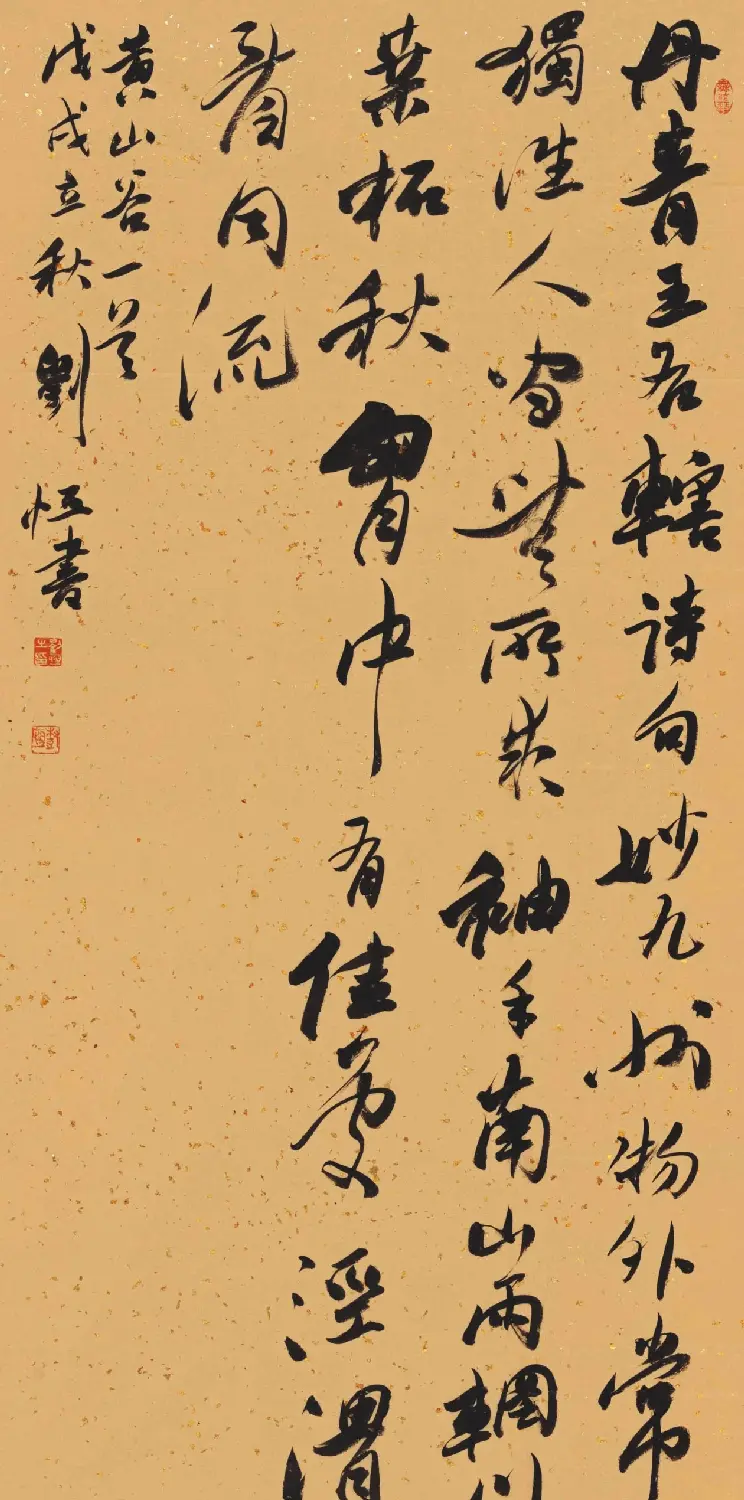 丹青王右轄詩句妙九州物外常
獨往人間無所求袖手南山雨輞川
桒柘秋胷中有佳處涇渭
看同流
黄山谷一首
戊戌立秋劉恒書